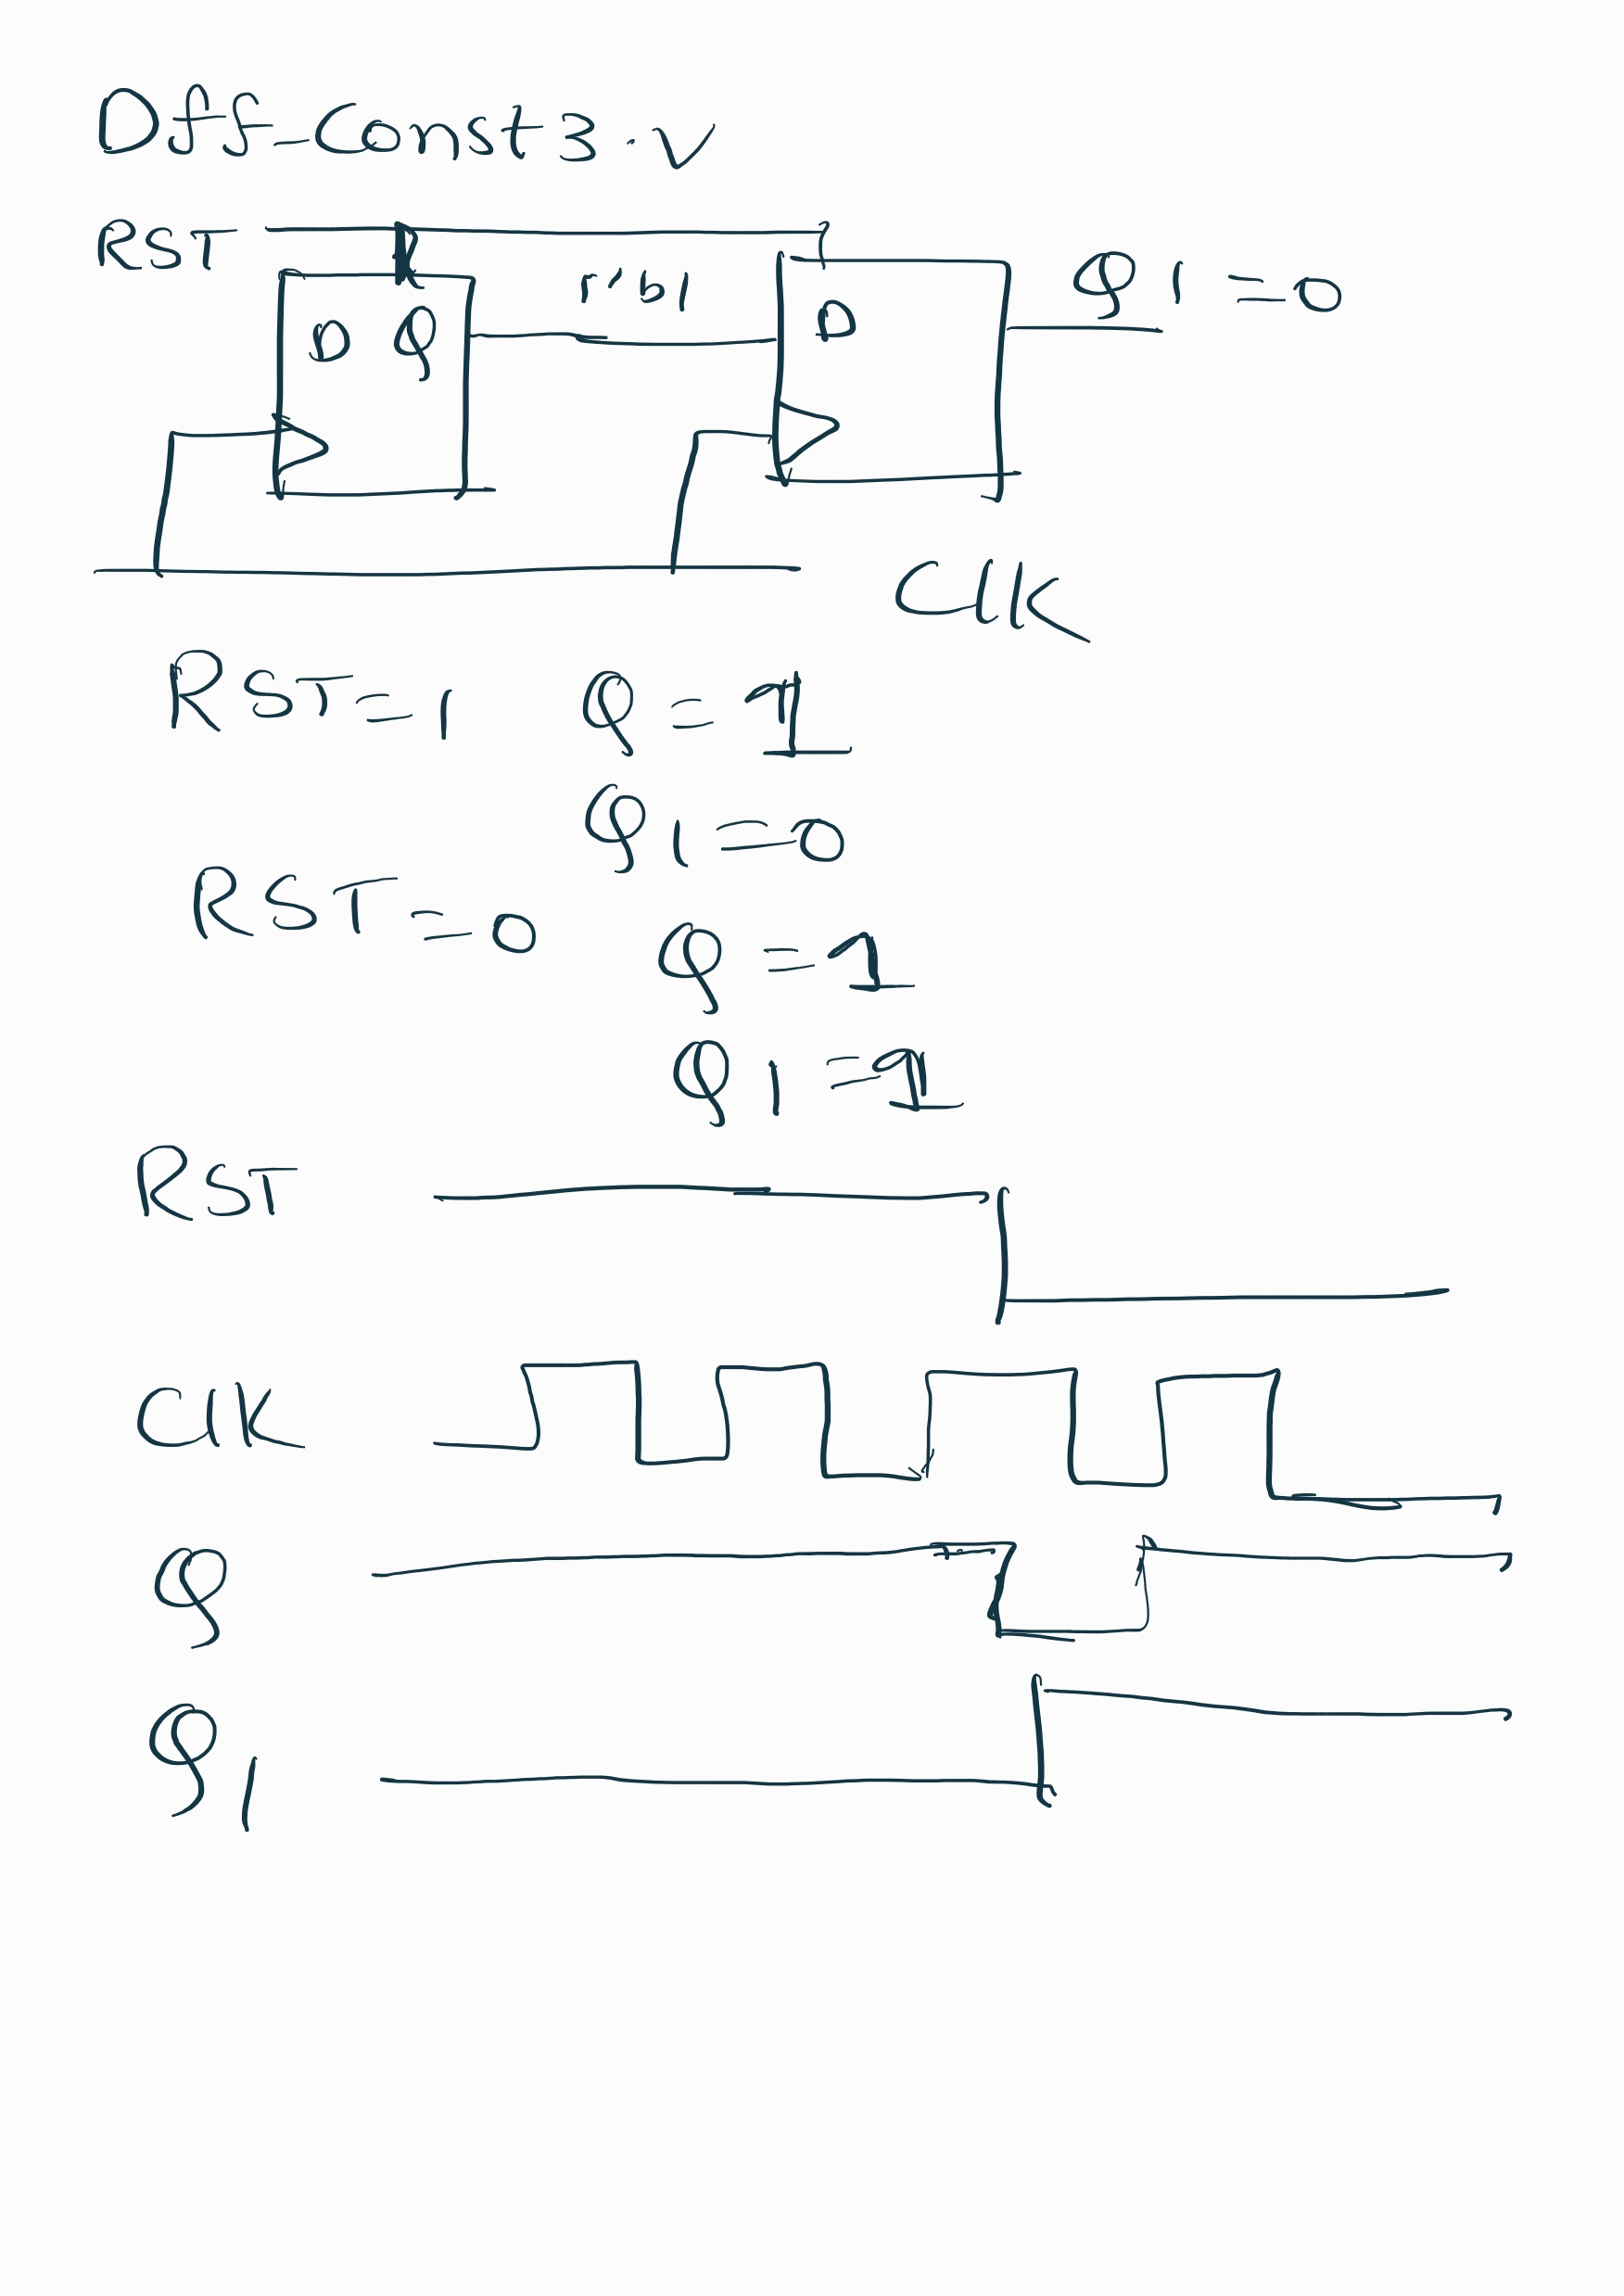 Dff_Const3.v
RST
1'b1
Q1=0
D Q
D
Clk
RST=1 Q=1
Q1=0
RST=0
Q=1
Q1=1
RST
Clk
Q
Q1